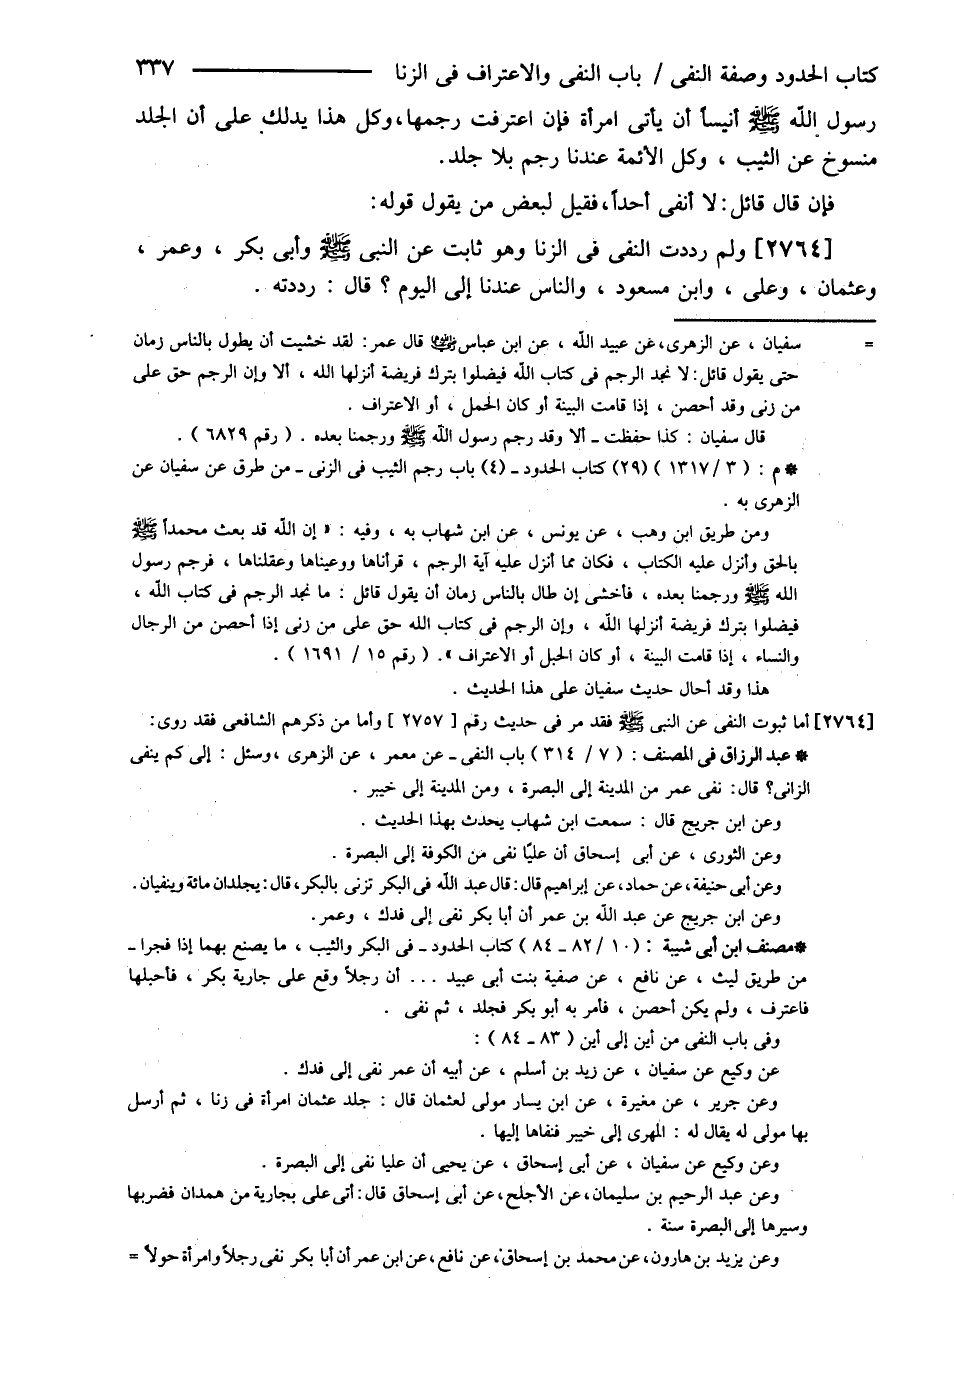 كتاب الحدود وصفة النفى / باب النفى والاعتراف فى الزنا ــــــ ٣٣٧
رسول الله ﷺ أنيساً أن يأتى امرأة فإن اعترفت رجمها،وكل هذا يدلك على أن الجلد
منسوخ عن الثيب ، وكل الأئمة عندنا رجم بلا جلد.
فإن قال قائل: لا أنفى أحداً،فقيل لبعض من يقول قوله:
[٢٧٦٤] ولم رددت النفى فى الزنا وهو ثابت عن النبى ﷺ وأبى بكر ، وعمر ،
وعثمان ، وعلى ، وابن مسعود ، والناس عندنا إلى اليوم ؟ قال : رددته .
= سفيان ، عن الزهرى،عن عبيد الله ، عن ابن عباس رضي الله عنهما قال عمر: لقد خشيت أن يطول بالناس زمان
حتى يقول قائل: لا نجد الرجم فى كتاب الله فيضلوا بترك فريضة أنزلها الله ، ألا وإن الرجم حق على
من زنى وقد أحصن ، إذا قامت البينة أو كان الحمل ، أو الاعتراف .
قال سفيان : كذا حفظت ـ ألا وقد رجم رسول الله ﷺ ورجمنا بعده . ( رقم ٦٨٢٩ ) .
* م : ( ٣ / ١٣١٧ ) (٢٩) كتاب الحدود ـ (٤) باب رجم الثيب فى الزنى ـ من طرق عن سفيان عن
الزهرى به .
ومن طريق ابن وهب ، عن يونس ، عن ابن شهاب به ، وفيه : « إن الله قد بعث محمداً ﷺ
بالحق وأنزل عليه الكتاب ، فكان مما أنزل عليه آية الرجم ، قرأناها ووعيناها وعقلناها ، فرجم رسول
الله ﷺ ورجمنا بعده ، فأخشى إن طال بالناس زمان أن يقول قائل : ما نجد الرجم فى كتاب الله ،
فيضلوا بترك فريضة أنزلها الله ، وإن الرجم فى كتاب الله حق على من زنى إذا أحصن من الرجال
والنساء ، إذا قامت البينة ، أو كان الحبل أو الاعتراف ». ( رقم ١٥ / ١٦٩١ ) .
هذا وقد أحال حديث سفيان على هذا الحديث .
[٢٧٦٤] أما ثبوت النفى عن النبى ﷺ فقد مر فى حديث رقم [ ٢٧٥٧ ] وأما من ذكرهم الشافعى فقد روى:
* عبد الرزاق فى المصنف : ( ٧ / ٣١٤ ) باب النفى ـ عن معمر ، عن الزهرى ،وسئل : إلى كم ينفى
الزانى؟ قال: نفى عمر من المدينة إلى البصرة ، ومن المدينة إلى خيبر .
وعن ابن جريج قال : سمعت ابن شهاب يحدث بهذا الحديث .
وعن الثورى ، عن أبى إسحاق أن عليًا نفى من الكوفة إلى البصرة .
وعن أبى حنيفة،عن حماد،عن إبراهيم قال: قال عبد الله فى البكر تزنى بالبكر،قال: يجلدان مائة وينفيان.
وعن ابن جريج عن عبد الله بن عمر أن أبا بكر نفى إلى فدك ، وعمر.
*مصنف ابن أبى شيبة : (١٠ / ٨٢ ـ ٨٤ ) كتاب الحدود ـ فى البكر والثيب ، ما يصنع بهما إذا فجرا ـ
من طريق ليث ، عن نافع ، عن صفية بنت أبى عبيد ... أن رجلاً وقع على جارية بكر ، فأحبلها
فاعترف ، ولم يكن أحصن ، فأمر به أبو بكر فجلد ، ثم نفى .
وفى باب النفى من أين إلى أين ( ٨٣ ـ ٨٤ ) :
عن وكيع عن سفيان ، عن زيد بن أسلم ، عن أبيه أن عمر نفى إلى فدك .
وعن جرير ، عن مغيرة ، عن ابن يسار مولى لعثمان قال : جلد عثمان امرأة فى زنا ، ثم أرسل
بها مولى له يقال له : المهرى إلى خيبر فنفاها إليها .
وعن وكيع عن سفيان ، عن أبى إسحاق ، عن يحيى أن عليا نفى إلى البصرة .
وعن عبد الرحيم بن سليمان،عن الأجلح،عن أبى إسحاق قال: أتى على بجارية من همدان فضربها
وسيرها إلى البصرة سنة .
وعن يزيد بن هارون،عن محمد بن إسحاق،عن نافع،عن ابن عمر أن أبا بكر نفى رجلاً وامرأة حولاً =